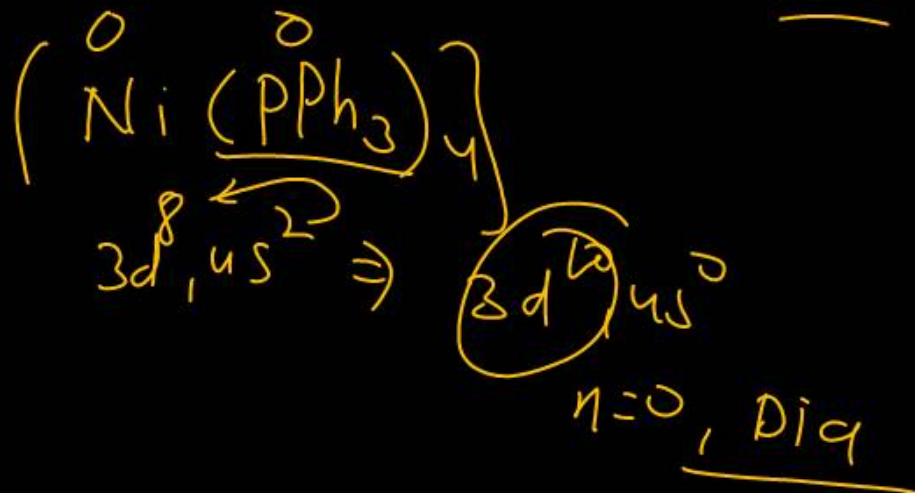 0 0
[Ni(PPh₃)₄]
3d⁸, 4s² ⇒ 3d¹⁰, 4s⁰
n=0, Dia